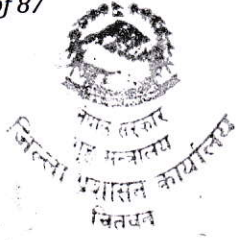 of 87
नेपाल सरकार
गृह मन्त्रालय
जिल्ला प्रशासन कार्यालय
चितवन